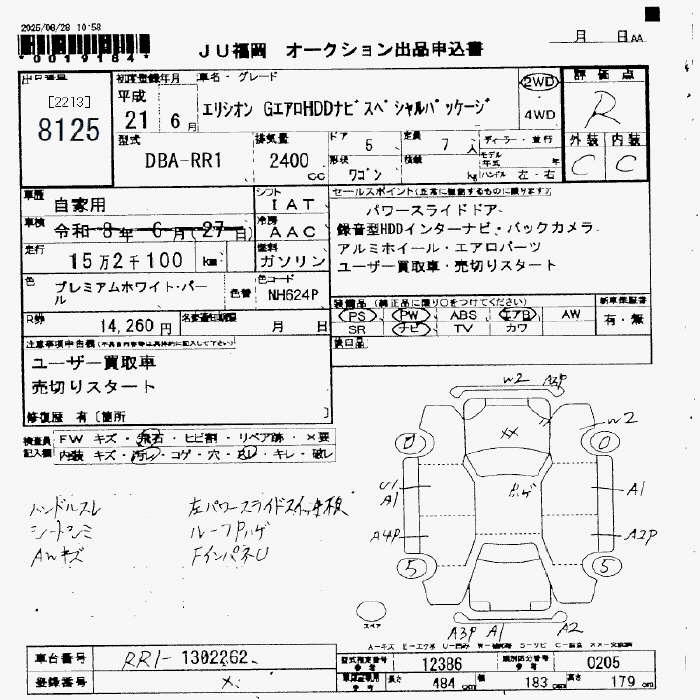 2025/08/28 10:58
*0019184*
JU福岡 オークション出品申込書
月 日 AA
出品番号 初度登録年月 車名・グレード 2WD 評価点
[2213] 平成 エリシオン GエアロHDDナビスペシャルパッケージ R
8125 21 6月 4WD
型式 排気量 ドア 5 定員 7人 ディーラー・並行 外装 内装
DBA-RR1 2400 cc 形状 ワゴン 積載 kg モデル年式 年 C C
ハンドル 左・右
車歴 自家用 シフト IAT セールスポイント(正常に機能するものに限ります)
車検 令和 8年 6月(27日) 冷房 AAC パワースライドドア
録音型HDDインターナビ・バックカメラ
走行 15万2千100 km 燃料 ガソリン アルミホイール・エアロパーツ
ユーザー買取車・売切りスタート
色 プレミアムホワイト・パール 色替 色コード NH624P
装備品(純正品に限り○をつけてください) 新車保証書
R券 14,260円 名変通知期限 月 日 PS PW ABS エアB AW 有・無
SR ナビ TV カワ
注意事項申告欄 欠口品
ユーザー買取車
売切りスタート
修復歴 有〔箇所 〕
検査員記入欄 FW キズ・飛石・ヒビ割・リペア跡・×要
内装 キズ・汚レ・コゲ・穴・スレ・キレ・破レ
ハンドルスレ
シートシミ
AWキズ
ルーフハゲ
W2 A2P
W2
XX
ハゲ
U1
A1
A1
A4P
A2P
5
5
スペア
A3P A1 A2
車台番号 RR1-1302262
登録番号 ×
型式指定番号 12386 類別区分番号 0205
長さ 484 cm 幅 183 cm 高さ 179 cm